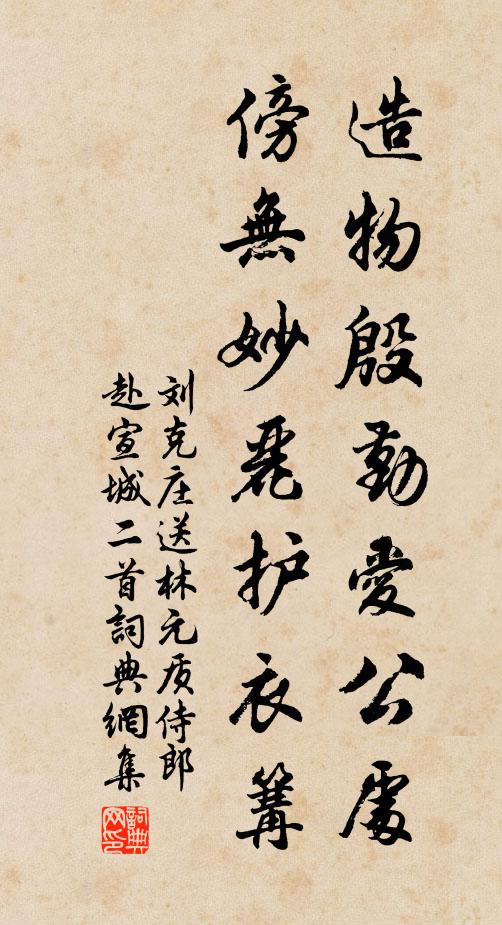 造物殷勤爱公處
傍無妙麗护衣篝
刘克庄送林元质侍郎
赴宣城二首詞典網集
詞典网印